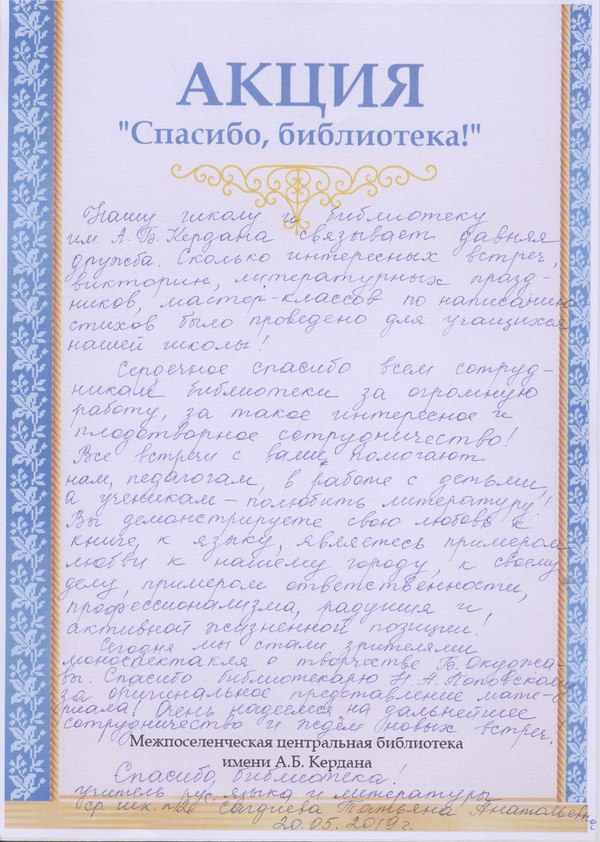 АКЦИЯ
"Спасибо, библиотека!"
Нашу школу и библиотеку
им. А.Б. Кердана связывает давняя
дружба. Сколько интересных встреч,
викторин, литературных празд-
ников, мастер-классов по написанию
стихов было проведено для учащихся
нашей школы!
Сердечное спасибо всем сотруд-
никам библиотеки за огромную
работу, за такое интересное и
плодотворное сотрудничество!
Все встречи с вами помогают
нам, педагогам, в работе с детьми,
а ученикам – полюбить литературу!
Вы демонстрируете свою любовь к
книге, к языку, являетесь примером
любви к нашему городу, к своему
делу, примером ответственности,
профессионализма, радушия и
активной жизненной позиции!
Сегодня мы стали зрителями
моноспектакля о творчестве Б. Окуджа-
вы. Спасибо библиотекарю Н.А. Поповскому
за оригинальное представление мате-
риала. Очень надеемся на дальнейшее
сотрудничество и ждём новых встреч.
Межпоселенческая центральная библиотека
имени А.Б. Кердана
Спасибо, библиотека!
учитель рус. языка и литературы
ср. шк. №2 Татьяна Анатольевна
20.05.2019г.